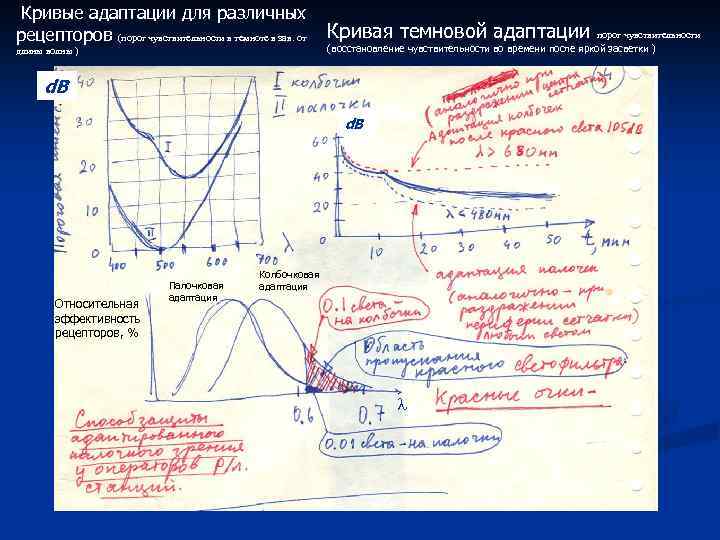 Кривые адаптации для различных
рецепторов (порог чувствительности в темноте в зав. от
длины волны )
Кривая темновой адаптации порог чувствительности
(восстановление чувствительности во времени после яркой засветки )
dB
Пороговая интенс.
40
30
20
10
0
400 500 600 700 λ
I колбочки
II палочки
I
II
dB
60
40
20
0
10 20 30 40 50 t, мин
(аналогично при
раздражении центра
сетчатки)
Адаптация колбочек
после красного света 105дБ
λ > 680 нм
λ < 480 нм
адаптация палочек
(аналогично - при
раздражении
периферии сетчатки)
любым светом
Палочковая
адаптация
Колбочковая
адаптация
Относительная
эффективность
рецепторов, %
0.1 света -
на колбочки
Область
пропускания
красного светофильтра.
Красные очки -
0.6 0.7 λ
0.01 света - на палочки
Способ защиты
адаптированного
палочного зрения
у операторов р/л.
станций.